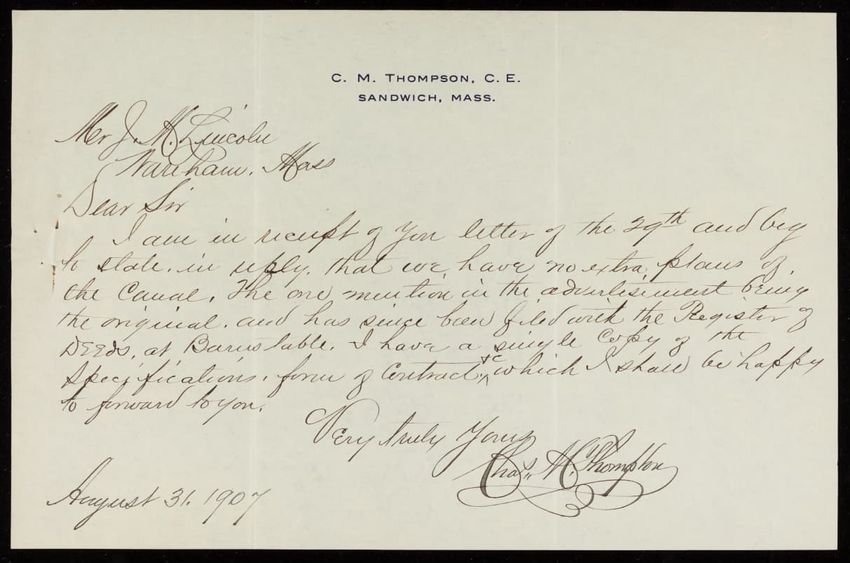 C. M. THOMPSON, C. E.
SANDWICH, MASS.
Mr J. A. Lincoln
Wareham. Mass
Dear Sir
I am in receipt of you letter of the 29th and beg
to state. in reply. that we have no extra plans of
the Canal. The one mention in the advertisement being
the original. and has since been filed with the Register of
Deeds, at Barnstable. I have a single copy of the
specifications. form of Contract &c which I shall be happy
to forward to you.
Very truly Yours
Chas. M. Thompson
August 31. 1907